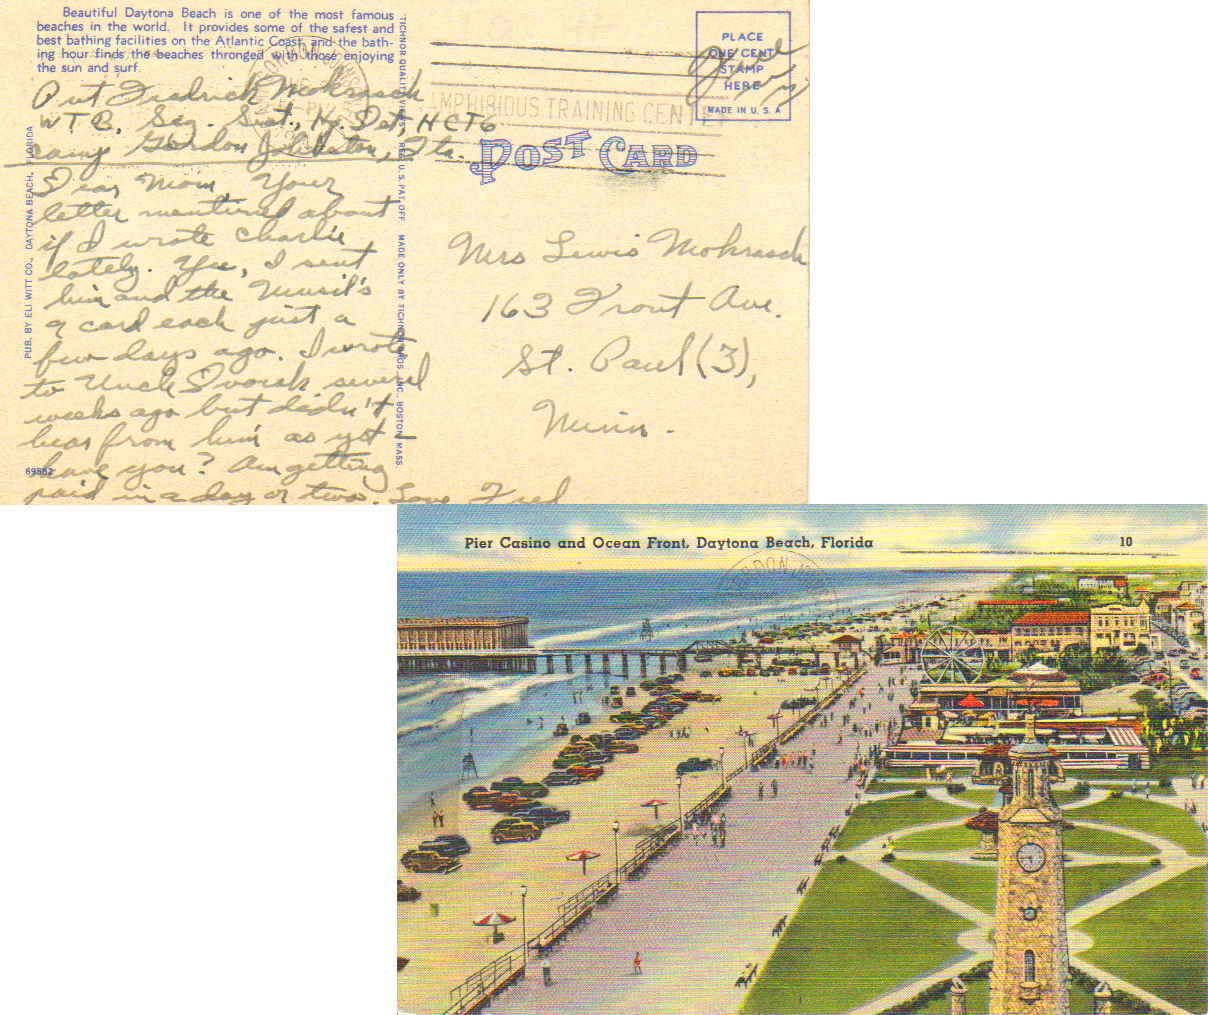 Beautiful Daytona Beach is one of the most famous
beaches in the world. It provides some of the safest and
best bathing facilities on the Atlantic Coast, and the bath-
ing hour finds the beaches thronged with those enjoying
the sun and surf.
Pvt Fredrick Mohrasch
WTB, Sig. Sect., Hq. Det, HCT6
Camp Gordon Johnston, Fla.
Dear Mom, Your
letter mentioned about
if I wrote Charlie
lately. Yes, I sent
him and the Musil's
a card each just a
few days ago. I wrote
to Uncle Dvorak several
weeks ago but didn't
hear from him as yet -
have you? Am getting
paid in a day or two. Love Fred
69882
PUB. BY ELI WITT CO., DAYTONA BEACH, FLORIDA
TICHNOR QUALITY VIEWS REG. U. S. PAT. OFF. MADE ONLY BY TICHNOR BROS., INC., BOSTON, MASS.
PLACE
ONE CENT
STAMP
HERE
MADE IN U. S. A
Free
AMPHIBIOUS TRAINING CENTER
POST CARD
Mrs Lewis Mohrasch
163 Front Ave.
St. Paul (3),
Minn.
Pier Casino and Ocean Front, Daytona Beach, Florida
10
GORDON